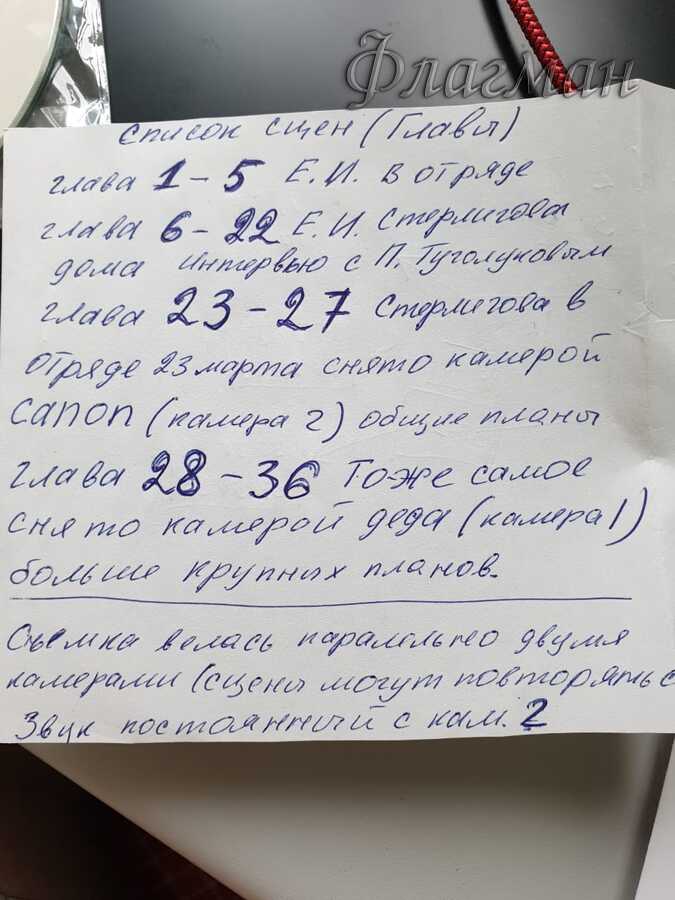 Флагман
Список сцен (Главы)
глава 1-5 Е.И. в отряде
глава 6-22 Е.И. Стерлигова
дома интервью с П. Туголуковым
глава 23-27 Стерлигова в
отряде 23 марта снято камерой
canon (камера 2) общие планы
глава 28-36 То-же самое
снято камерой деда (камера 1)
больше крупных планов.
Съемка велась паралельно двумя
камерами (сцены могут повторятьс
Звук постоянный с кам. 2